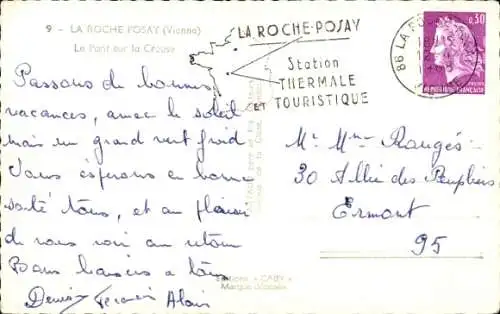 9 - LA ROCHE POSAY (Vienne)
Le Pont sur la Creuse
Passons de bonnes
vacances, avec le soleil
mais un grand vent froid
Vous espérons en bonne
santé tous, et au plaisir
de vous voir au retour
Bons baisers a tous
Denise Alain
LA ROCHE-POSAY
Station
THERMALE
ET TOURISTIQUE
86 LA RO
0,30
RÉPUBLIQUE FRANÇAISE
Mr Mme Rangés
30 Allée des Peupliers
Ermont
95
Editions "CABY"